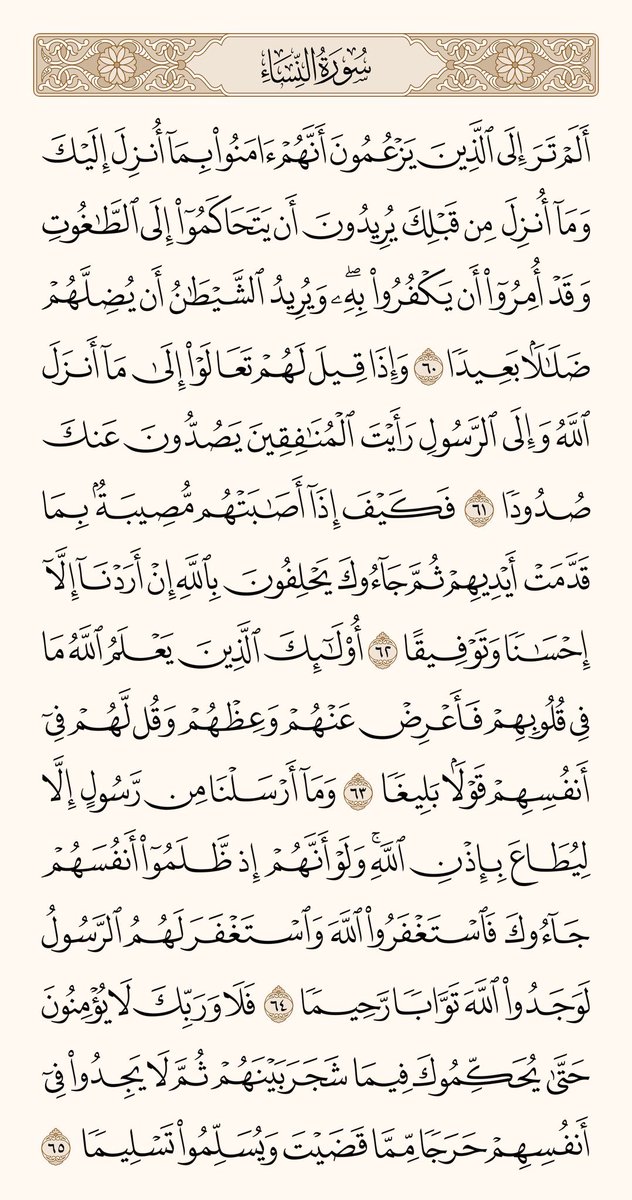 سُورَةُ النِّسَاءِ
أَلَمۡ تَرَ إِلَى ٱلَّذِينَ يَزۡعُمُونَ أَنَّهُمۡ ءَامَنُواْ بِمَآ أُنزِلَ إِلَيۡكَ
وَمَآ أُنزِلَ مِن قَبۡلِكَ يُرِيدُونَ أَن يَتَحَاكَمُوٓاْ إِلَى ٱلطَّٰغُوتِ
وَقَدۡ أُمِرُوٓاْ أَن يَكۡفُرُواْ بِهِۦۖ وَيُرِيدُ ٱلشَّيۡطَٰنُ أَن يُضِلَّهُمۡ
ضَلَٰلَۢا بَعِيدٗا ٦٠ وَإِذَا قِيلَ لَهُمۡ تَعَالَوۡاْ إِلَىٰ مَآ أَنزَلَ
ٱللَّهُ وَإِلَى ٱلرَّسُولِ رَأَيۡتَ ٱلۡمُنَٰفِقِينَ يَصُدُّونَ عَنكَ
صُدُودٗا ٦١ فَكَيۡفَ إِذَآ أَصَٰبَتۡهُم مُّصِيبَةُۢ بِمَا
قَدَّمَتۡ أَيۡدِيهِمۡ ثُمَّ جَآءُوكَ يَحۡلِفُونَ بِٱللَّهِ إِنۡ أَرَدۡنَآ إِلَّآ
إِحۡسَٰنٗا وَتَوۡفِيقًا ٦٢ أُوْلَٰٓئِكَ ٱلَّذِينَ يَعۡلَمُ ٱللَّهُ مَا
فِي قُلُوبِهِمۡ فَأَعۡرِضۡ عَنۡهُمۡ وَعِظۡهُمۡ وَقُل لَّهُمۡ فِيٓ
أَنفُسِهِمۡ قَوۡلَۢا بَلِيغٗا ٦٣ وَمَآ أَرۡسَلۡنَا مِن رَّسُولٍ إِلَّا
لِيُطَاعَ بِإِذۡنِ ٱللَّهِۚ وَلَوۡ أَنَّهُمۡ إِذ ظَّلَمُوٓاْ أَنفُسَهُمۡ
جَآءُوكَ فَٱسۡتَغۡفَرُواْ ٱللَّهَ وَٱسۡتَغۡفَرَ لَهُمُ ٱلرَّسُولُ
لَوَجَدُواْ ٱللَّهَ تَوَّابٗا رَّحِيمٗا ٦٤ فَلَا وَرَبِّكَ لَا يُؤۡمِنُونَ
حَتَّىٰ يُحَكِّمُوكَ فِيمَا شَجَرَ بَيۡنَهُمۡ ثُمَّ لَا يَجِدُواْ فِيٓ
أَنفُسِهِمۡ حَرَجٗا مِّمَّا قَضَيۡتَ وَيُسَلِّمُواْ تَسۡلِيمٗا ٦٥